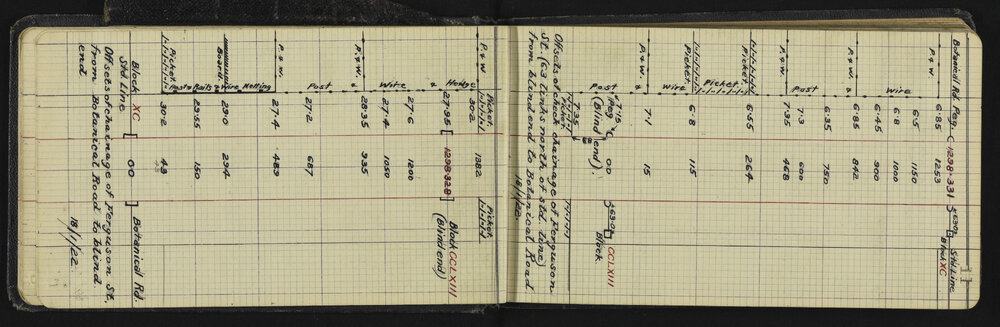 Botanical Rd. Peg. C 1298·331 5 63·0 Std Line
Block XC
P.&W. 6·85 1253
6·5 1150
Wire 6·8 1000
6·45 900
& P.&W. 6·85 842
6·35 750
Post 7·3 600
P.&W. 7·35 468
Picket 6·55 264
Picket
Picket 6·8 115
Wire
P.&W. 7·1 15
&
Post 7·15 Peg C 00 5 63·0 CCLXIII
(Blind end). Block
7·35
Picket
Offsets of check chainage of Ferguson
St. (63 links north of Std. line)
from blind end to Botanical Road
18/1/22.
P.&W. Picket Picket
30·2 1382
Hedge 27·95 [1298·328] Block CCLXIII
(Blind end)
& 27·6 1200
Wire 27·4 1050
P.&W. 28·35 935
Post 27·2 687
P.&W. 27·4 489
Post & Rails & Wire Netting
Board 29·0 294
29·55 150
Picket 30·2 43
Block XC 00 Botanical Rd.
Std Line
Offsets of chainage of Ferguson St.
from Botanical Road to blind
end 18/1/22.